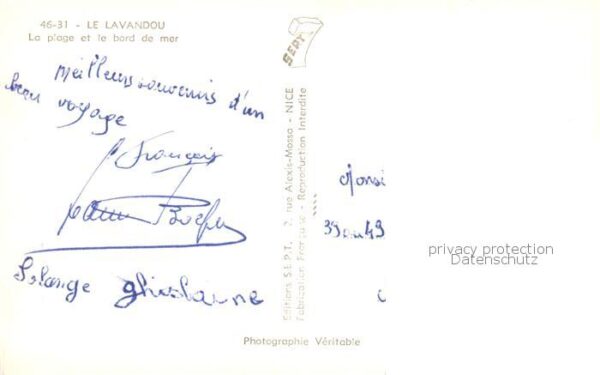 46-31 - LE LAVANDOU
La plage et le bord de mer
meilleurs souvenirs d'un
beau voyage
François
Solange Ghislaine
SEPT
Editions S.E.P.T. 2, rue Alexis-Mossa - NICE
Fabrication Française - Reproduction Interdite
Monsi
39 au 49
privacy protection
Datenschutz
Photographie Véritable